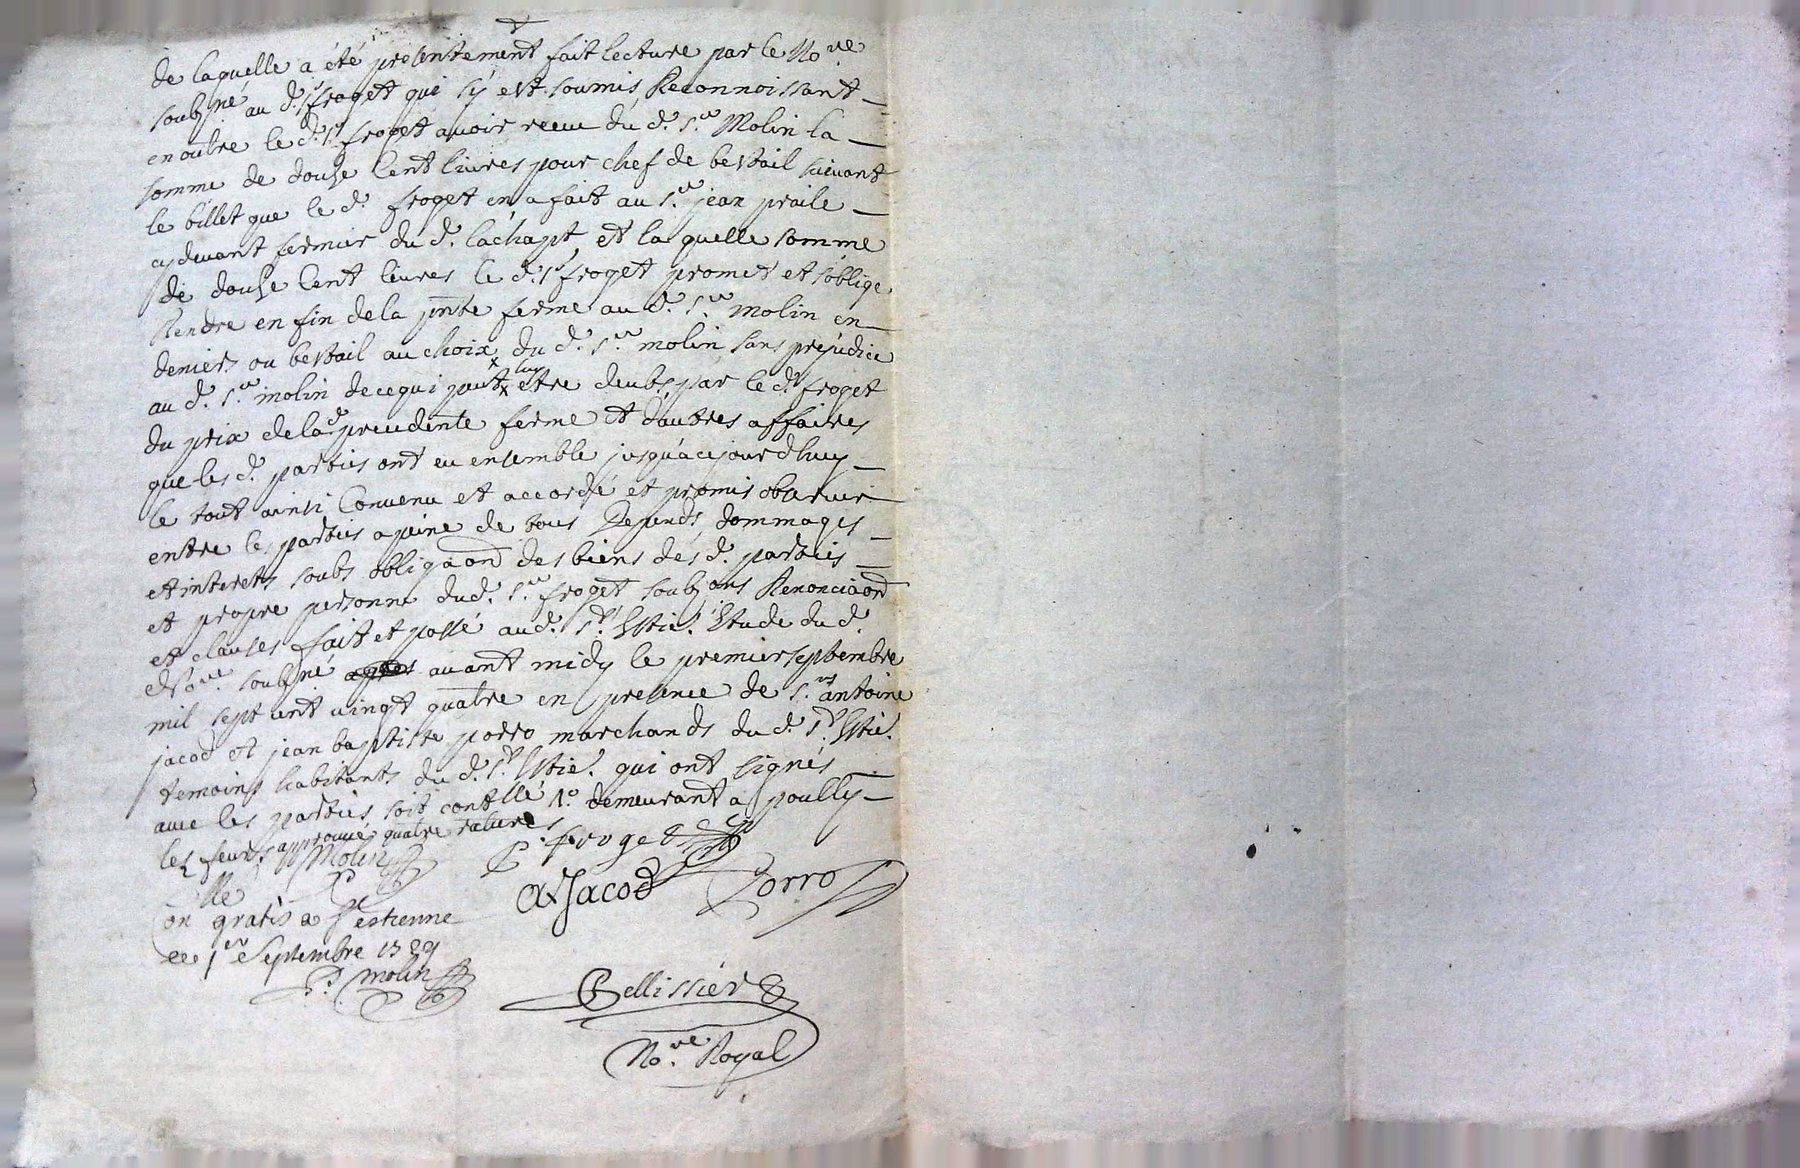 de laquelle a été presentement fait lecture par le No.re
soubsné au d. Sr froget qui sÿ est soumis Reconnoissant
en outre le d. Sr froget avoir receu du d. S.r Molin la
somme de douse Cent livres pour chef de bestail suivant
le billet que le d. froget en a fait au S.r jean praile
cy devant fermier du d. lachapt et la quelle somme
de douse Cent livres le d. Sr froget promet et s'oblige
Rendre en fin de la pnte ferme au d. S.r molin en
deniers ou bestail au choix du d. S.r molin sans prejudice
au d. S.r molin de ce qui peut luy etre deubs par le d. froget
du prix de la d. precedente ferme et d'autres affaires
que les d. parties ont eu ensemble jusqu'a ce jourd'huy
le tout ainsi Convenu et accordé et promis observer
entre les parties a peine de tous Depends dommages
et interets soubs obligaon des biens des d. parties
et propre personne du d. S.r froget soubs ons Renonciaon
et clauses fait et passé au d. St Estie. Etude du d.
No.re soubsné avant midy le premier septembre
mil sept cent vingt quatre en presence de S.rs antoine
jacod et jean baptiste porro marchands du d. St Estie.
temoins habitants du d. St Estie. qui ont signés
avec les parties soit contllé 1.o demeurant a poully
les feurs approuvé quatre ratures
Molin P. froget
A Jacod Porro
Conlle gratis a St estienne
ce 1er Septembre 1724
P. molin
Pellissier
No.re Royal